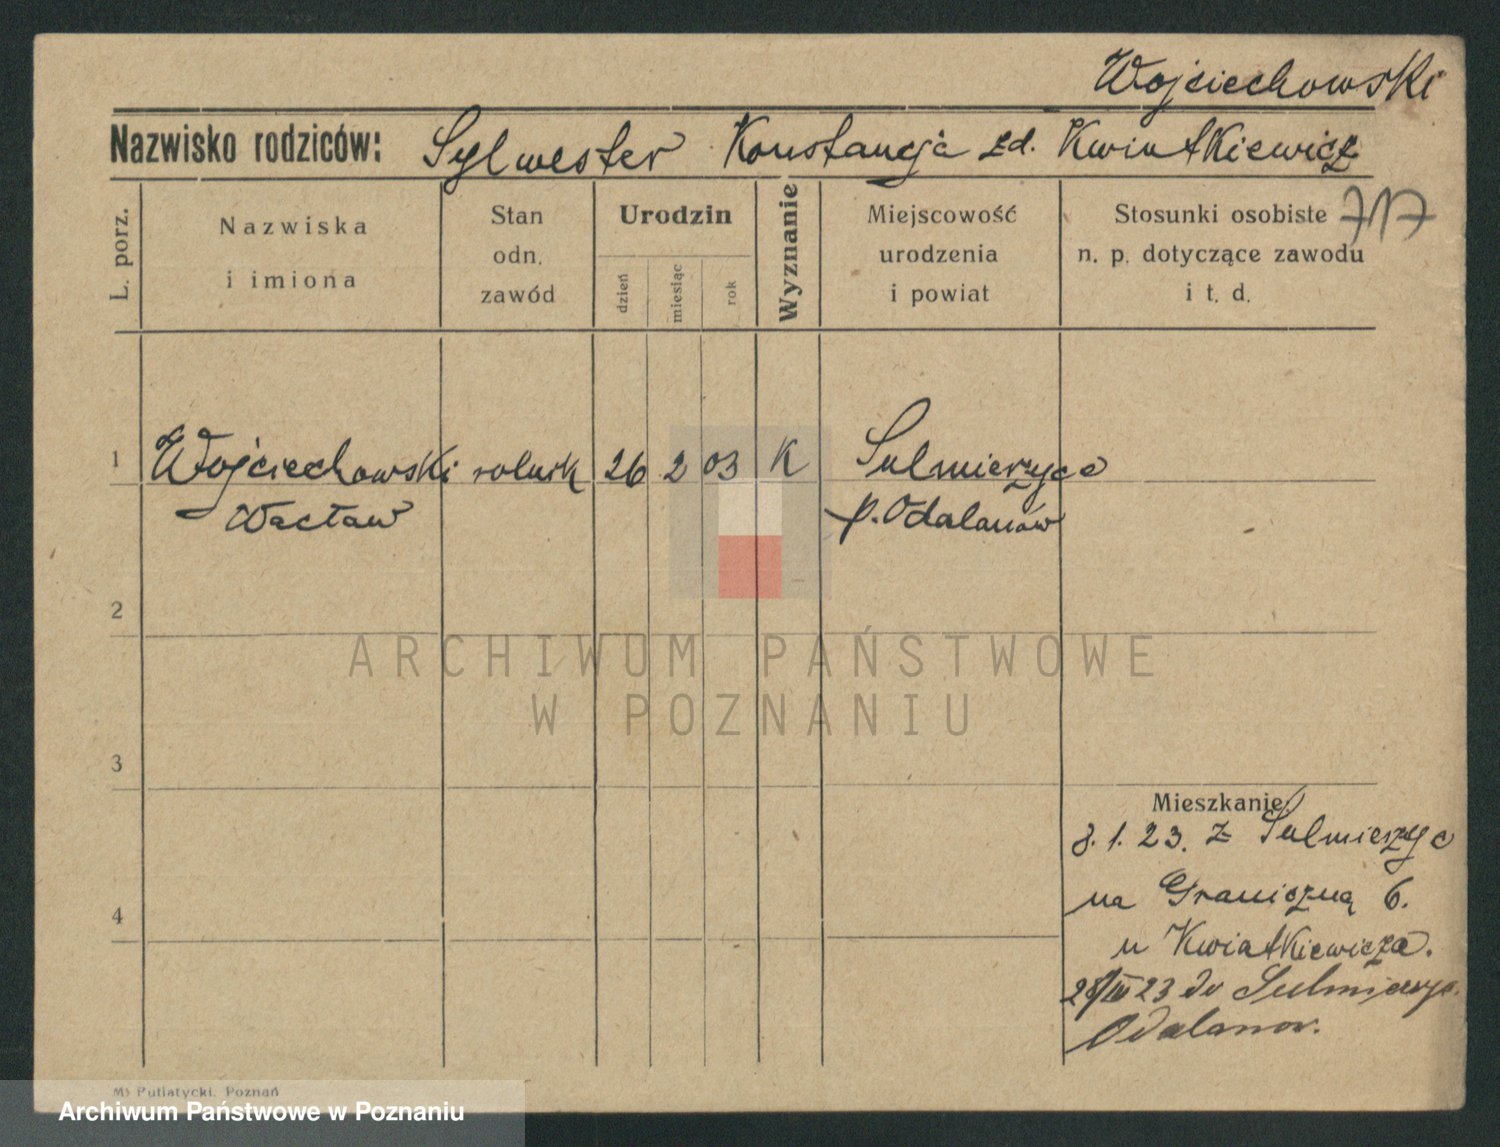 Wojciechowski
Nazwisko rodziców: Sylwester Konstancja zd. Kwiatkiewicz
717
L. porz.
Nazwiska
i imiona
Stan
odn.
zawód
Urodzin
dzień
miesiąc
rok
Wyznanie
Miejscowość
urodzenia
i powiat
Stosunki osobiste
n. p. dotyczące zawodu
i t. d.
1 Wojciechowski rolnik 26 2 03 K Sulmierzyce
Wacław p. Odalanów
2
ARCHIWUM PAŃSTWOWE
W POZNANIU
3
Mieszkanie
8. 1. 23. z Sulmierzyc
na Graniczną 6.
4
u Kwiatkiewicza.
28/III 23 do Sulmierzyc.
Odalanow.
Putiatycki, Poznań
Archiwum Państwowe w Poznaniu